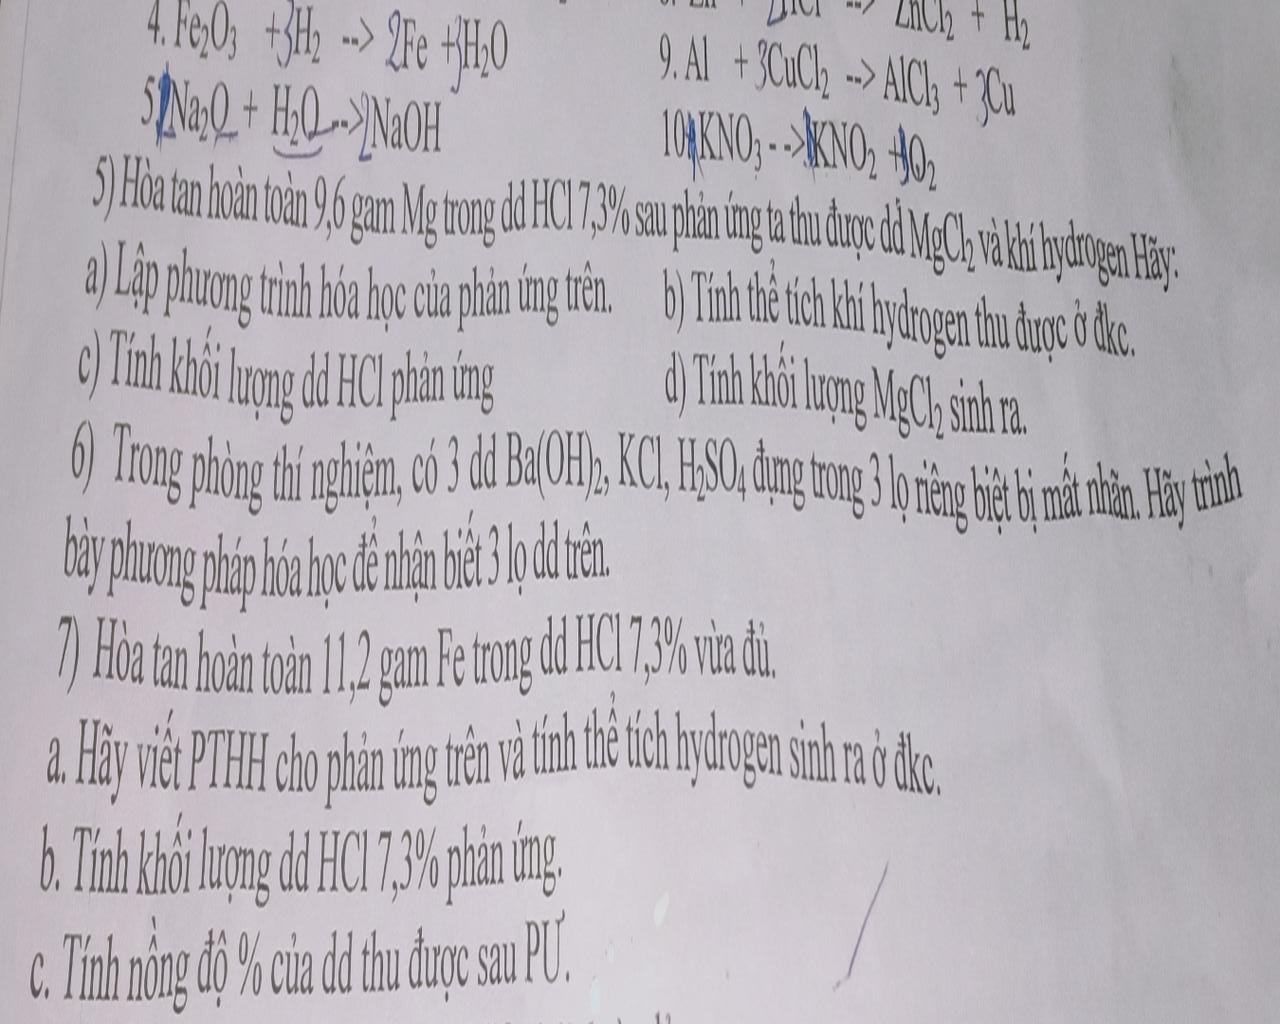 4. Fe₂O₃ +3H₂ --> 2Fe +3H₂O
ZnCl₂ + H₂
5. Na₂O + H₂O --> 2NaOH
9. Al + 3CuCl₂ --> AlCl₃ + 3Cu
10. KNO₃ --> KNO₂ + O₂
5) Hòa tan hoàn toàn 9,6 gam Mg trong dd HCl 7,3% sau phản ứng ta thu được dd MgCl₂ và khí hydrogen Hãy:
a) Lập phương trình hóa học của phản ứng trên. b) Tính thể tích khí hydrogen thu được ở đkc.
c) Tính khối lượng dd HCl phản ứng d) Tính khối lượng MgCl₂ sinh ra.
6) Trong phòng thí nghiệm, có 3 dd Ba(OH)₂, KCl, H₂SO₄ đựng trong 3 lọ riêng biệt bị mất nhãn. Hãy trình
bày phương pháp hóa học để nhận biết 3 lọ dd trên.
7) Hòa tan hoàn toàn 11,2 gam Fe trong dd HCl 7,3% vừa đủ.
a. Hãy viết PTHH cho phản ứng trên và tính thể tích hydrogen sinh ra ở đkc.
b. Tính khối lượng dd HCl 7,3% phản ứng.
c. Tính nồng độ % của dd thu được sau PƯ.